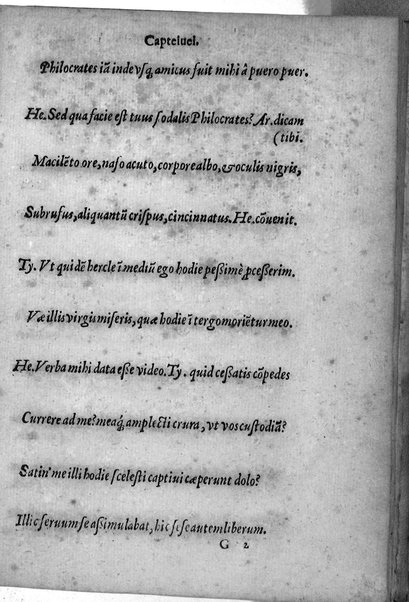 Capteiuei.
Philocrates iā inde vsq; amicus fuit mihi â puero puer.
He. Sed qua facie est tuus sodalis Philocrates? Ar. dicam
(tibi.
Macilēto ore, naso acuto, corpore albo, & oculis nigris,
Subrufus, aliquantū crispus, cincinnatus. He. cōuenit.
Ty. Vt quidē hercle ī mediū ego hodie peßimè ꝓceßerim.
Væ illis virgis miseris, quæ hodie ī tergo moriētur meo.
He. Verba mihi data eße video. Ty. quid ceßatis cōpedes
Currere ad me? meaq́; amplecti crura, vt vos custodiā?
Satin' me illi hodie scelesti captiui cæperunt dolo?
Illic seruum se aßimulabat, hic sese autem liberum.
G 2